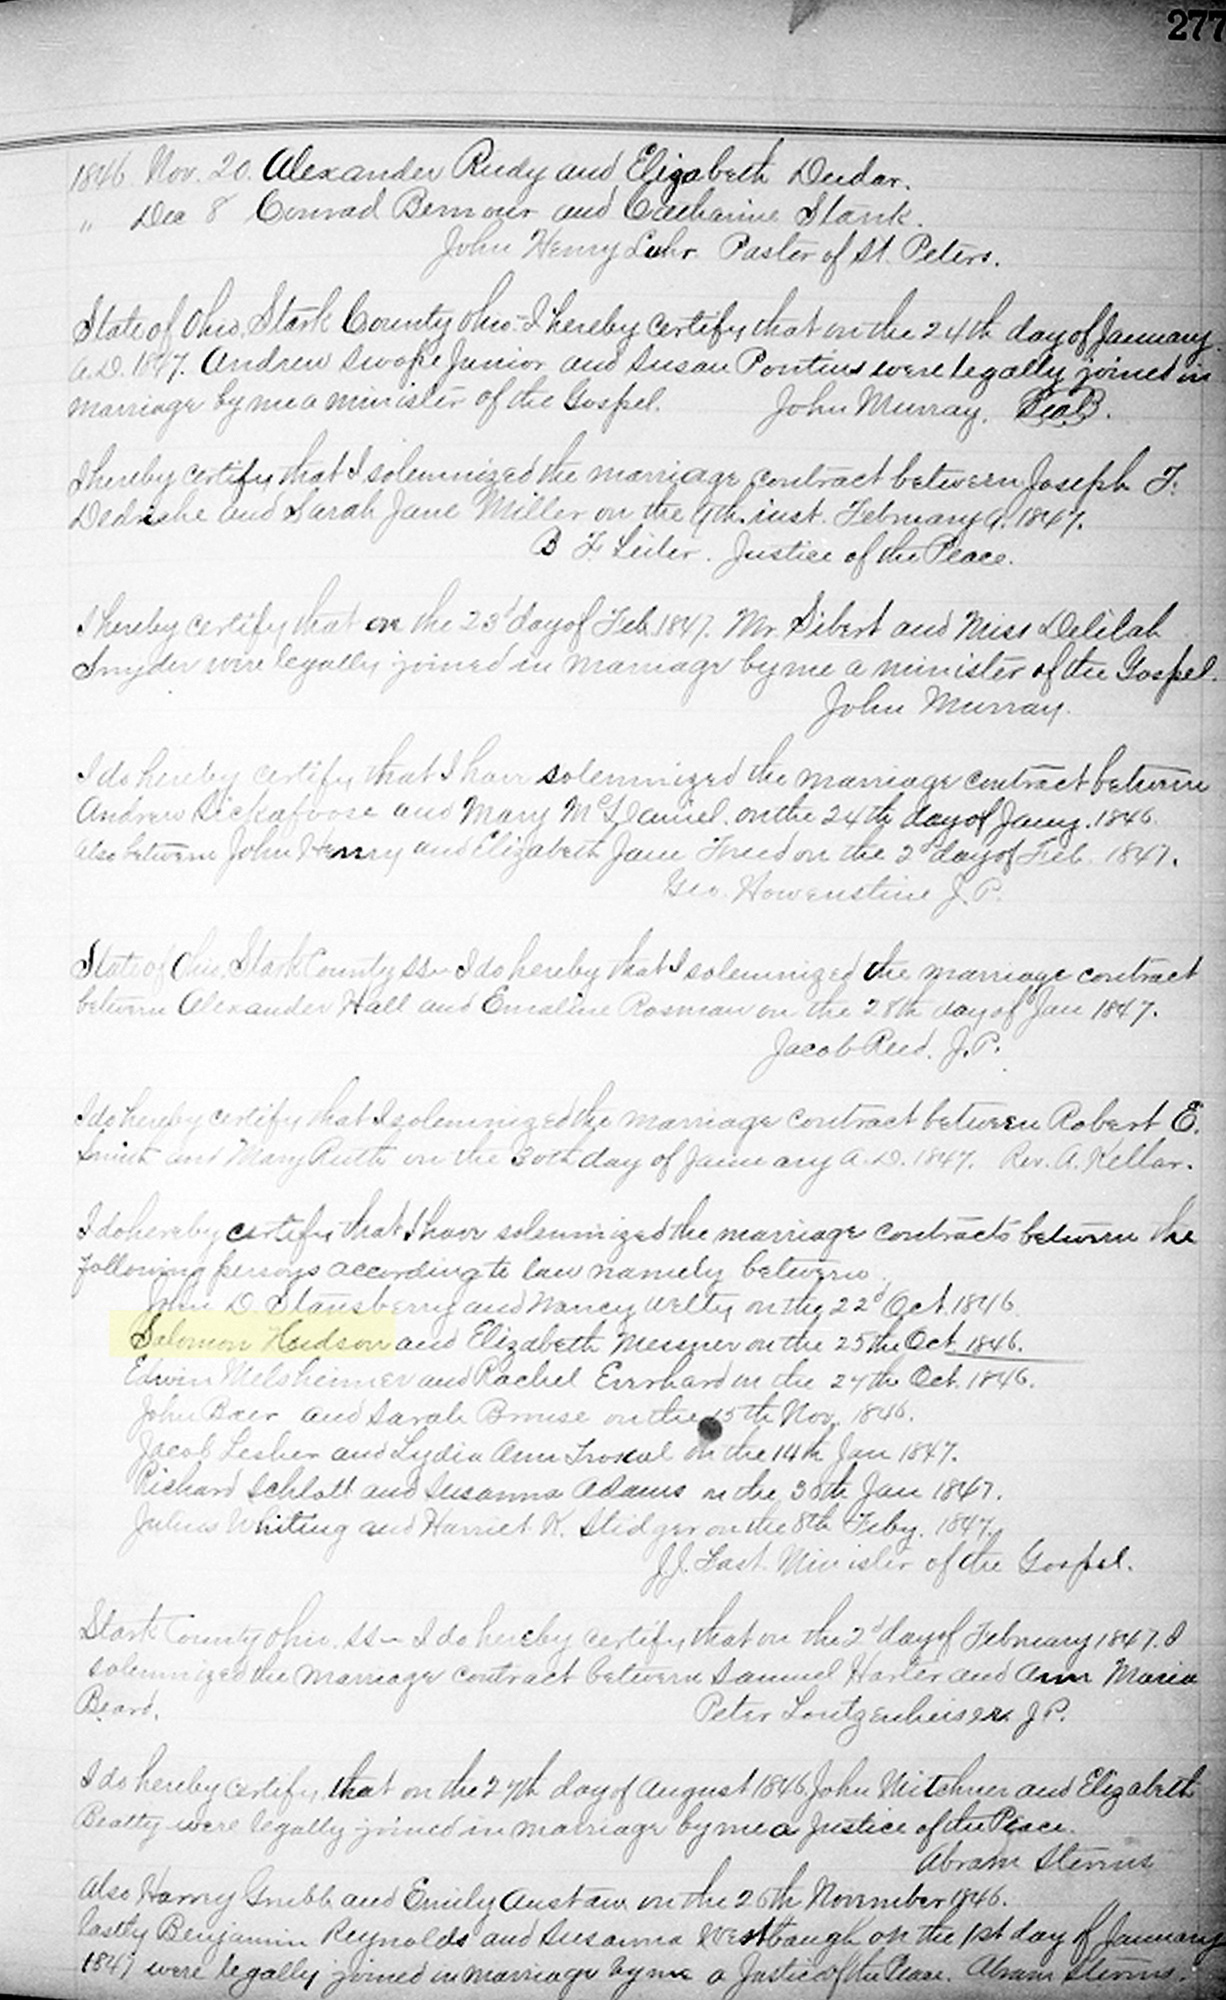 277
1846 Nov. 20. Alexander Rudy and Elizabeth Dudar.
" Dec 8 Conrad and Catharine Stank.
John Henry Luhr Pastor of St. Peters.
State of Ohio, Stark County Ohio - I hereby certify that on the 24th day of January
A.D. 1847. Andrew Swope Junior and Susan Pontius were legally joined in
marriage by me a minister of the Gospel. John Murray. Seal.
I hereby certify that I solemnized the marriage contract between Joseph F.
and Sarah Jane Miller on the 9th. inst. February 9. 1847.
B F Leiter. Justice of the Peace.
I hereby certify that on the 23d day of Feb. 1847. Mr. Sibert and Miss Delilah
Snyder were legally joined in marriage by me a minister of the Gospel.
John Murray.
I do hereby certify that I have solemnized the marriage contract between
Andrew Rickafoose and Mary McDaniel on the 24th day of Jany. 1846
also between John Henry and Elizabeth Jane on the 2d day of Feb. 1847.
Geo. Howenstine J.P.
State of Ohio, Stark County ss - I do hereby that I solemnized the marriage contract
between Alexander Hall and Emaline Rosman on the 28th day of Jan 1847.
Jacob Reed. J.P.
I do hereby certify that I solemnized the marriage contract between Robert E.
Smith and Mary Ruth on the 30th day of January A.D. 1847. Rev. A. Kellar.
I do hereby certify that I have solemnized the marriage contracts between the
following persons according to law namely between
John D. Stansberry and Nancy Welty on the 22d Oct. 1846
Salomon Hudson and Elizabeth Messner on the 25th Oct. 1846.
Edwin Melsheimer and Rachel Errhard on the 27th Oct. 1846.
John Baer and Sarah Brouse on the 15th Nov. 1846.
Jacob Lesher and Lydia Ann Troxal on the 14th Jan 1847.
Richard Schlott and Susanna Adams on the 30th Jan 1847.
Julius Whiting and Harriet K. Stidger on the 8th Feby. 1847.
J.J. Fast Minister of the Gospel.
Stark County Ohio. ss - I do hereby certify that on the 2d day of February 1847. I
solemnized the marriage contract between Samuel Harter and Ann Maria
Beard. Peter Loutzenheiser J.P.
I do hereby certify that on the 27th day of August 1846. John Mitchner and Elizabeth
Beatty were legally joined in marriage by me a Justice of the Peace.
Abram Stevens
also Harry Grubb and Emily Austaw on the 26th November 1846.
lastly Benjamin Reynolds and Susanna Westbaugh on the 1st day of January
1847 were legally joined in marriage by me a Justice of the Peace. Abram Stevens.